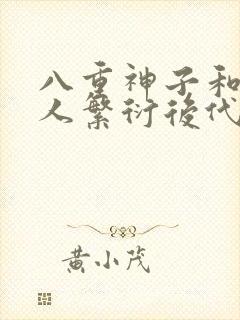 八重神子和
人繁衍後代
黄小茂